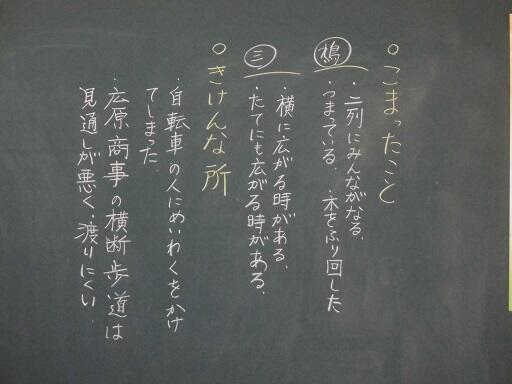 ○こまったこと
鳩
・二列にみんながなる。
・つまっている。・木をふり回した
三
・横に広がる時がある。
・たてにも広がる時がある。
○きけんな所
・自転車の人にめいわくをかけ
てしまった。
・広原商事の横断歩道は
見通しが悪く、渡りにくい。